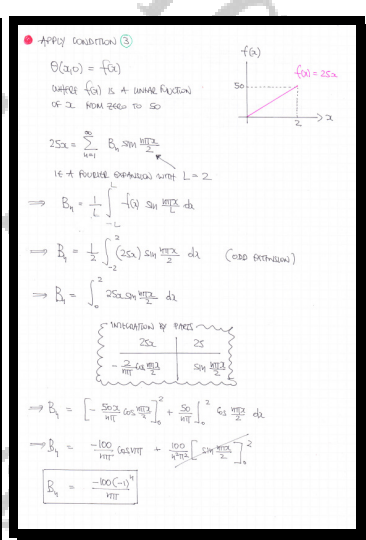 APPLY CONDITION ③
θ(x,0) = f(x)
WHERE f(x) IS A LINEAR FUNCTION
OF x FROM ZERO TO 50
f(x)
f(x) = 25x
50
2
x
25x = ∑_{n=1}^{∞} Bₙ sin nπx/2
IE A FOURIER EXPANSION WITH L = 2
⟹ Bₙ = 1/L ∫_{-L}^{L} f(x) sin nπx/L dx
⟹ Bₙ = 1/2 ∫_{-2}^{2} (25x) sin nπx/2 dx (ODD EXTENSION)
⟹ Bₙ = ∫_{0}^{2} 25x sin nπx/2 dx
INTEGRATION BY PARTS
25x | 25
-2/nπ cos nπx/2 | sin nπx/2
⟹ Bₙ = [-50x/nπ cos nπx/2]_{0}^{2} + 50/nπ ∫_{0}^{2} cos nπx/2 dx
⟹ Bₙ = -100/nπ cos nπ + 100/n²π² [sin nπx/2]_{0}^{2}
Bₙ = -100(-1)ⁿ/nπ